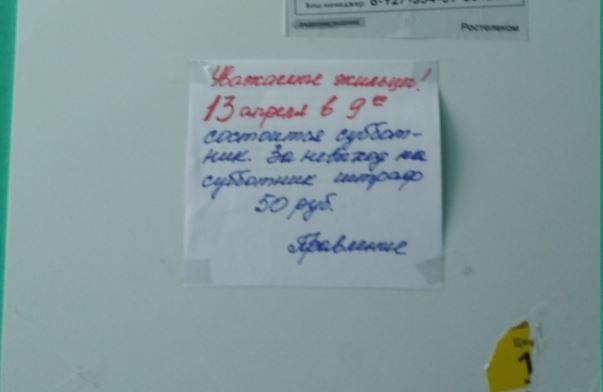 Ваш менеджер:
Ростелеком
Уважаемые жильцы!
13 апреля в 9⁰⁰
состоится суббот-
ник. За невыход на
субботник штраф
50 руб.
Правление
1